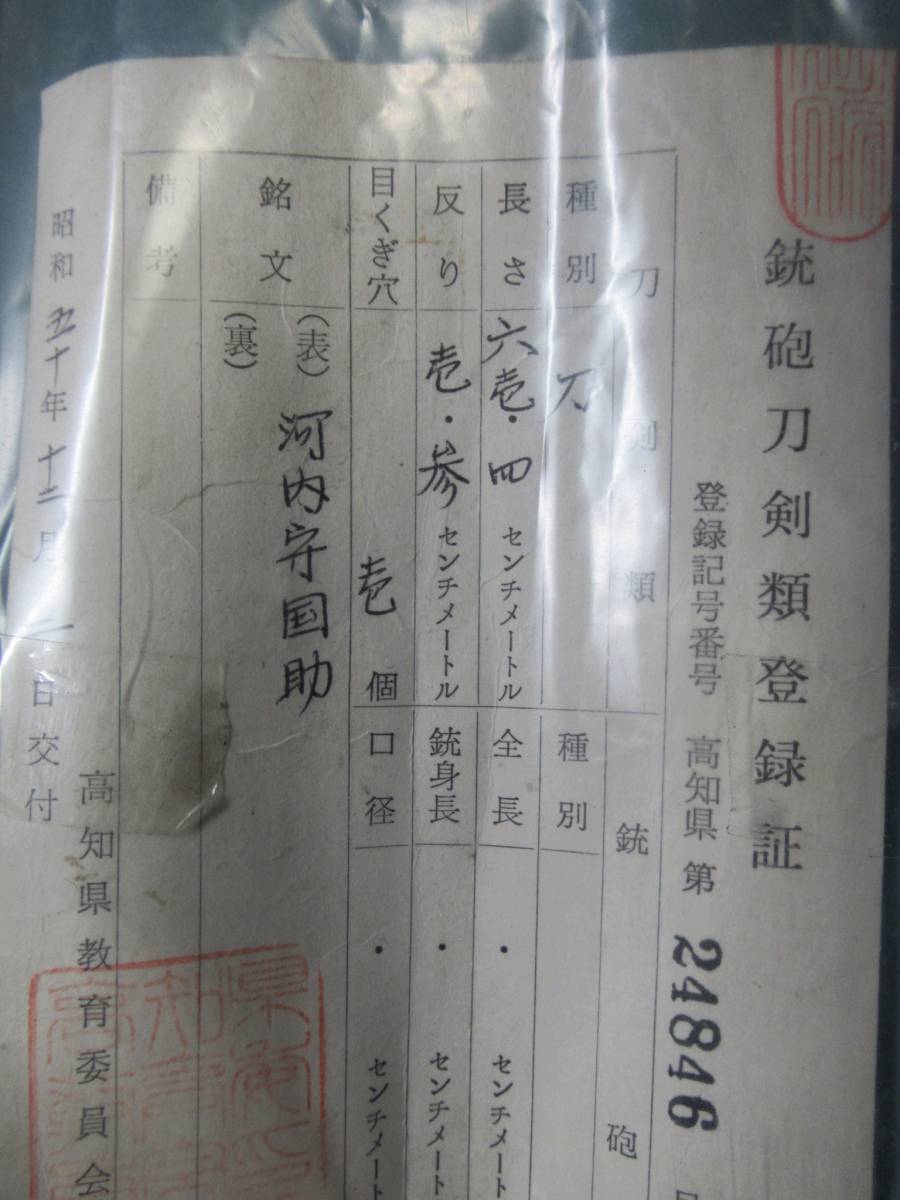 銃砲刀剣類登録証
登録記号番号 高知県 第 24846
刀剣類
種別 刀
長さ 六壱・四 センチメートル
反り 壱・参 センチメートル
目くぎ穴 壱 個
銘文 (表) 河内守国助
(裏)
備考
銃砲
種別
全長 ・ センチメート
銃身長 ・ センチメート
口径 ・ センチメート
昭和五十年十二月 日交付
高知県教育委員会